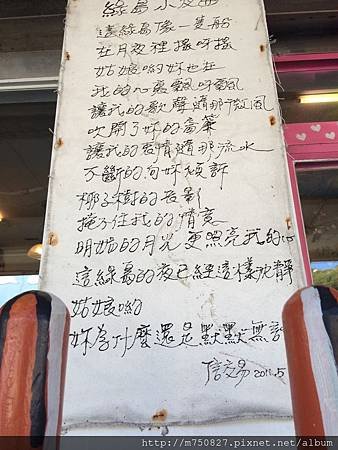 綠島小夜曲
這綠島像一隻船
在月夜裡搖呀搖
姑娘喲妳也在
我的心裏飄呀飄
讓我的歌聲隨那微風
吹開了妳的窗簾
讓我的衷情隨那流水
不斷的向妳傾訴
椰子樹的長影
掩不住我的情意
明媚的月光更照亮我的心
這綠島的夜已經這樣沈靜
姑娘喲
妳為什麼還是默默無語
2011.5
http://m750827.pixnet.net/album